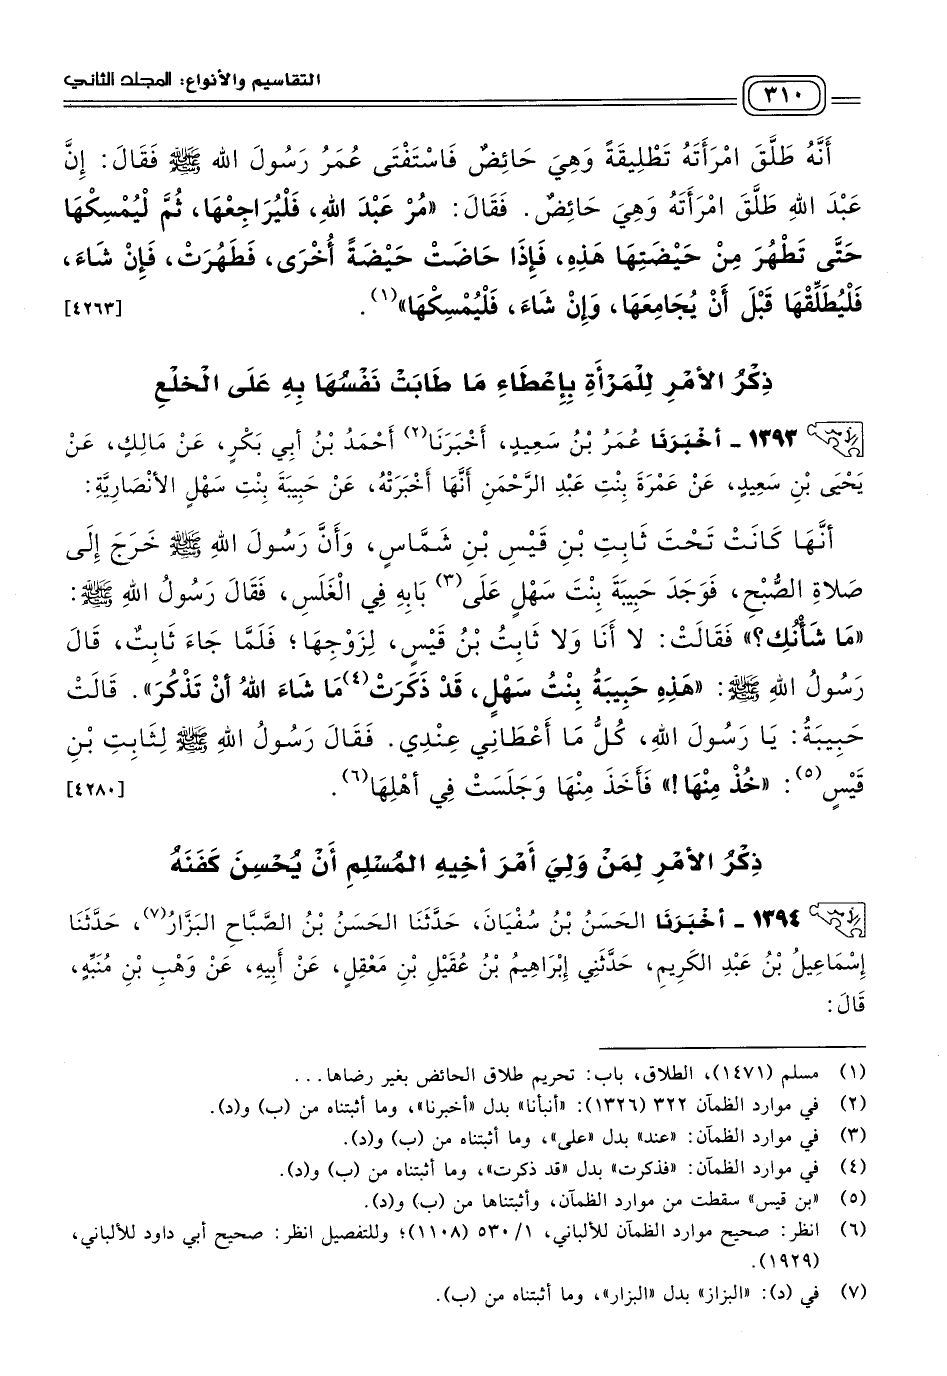 التقاسيم والأنواع: المجلد الثاني
٣١٠
أَنَّهُ طَلَّقَ امْرَأَتَهُ تَطْلِيقَةً وَهِيَ حَائِضٌ فَاسْتَفْتَى عُمَرُ رَسُولَ اللهِ ﷺ فَقَالَ: إِنَّ
عَبْدَ اللهِ طَلَّقَ امْرَأَتَهُ وَهِيَ حَائِضٌ. فَقَالَ: «مُرْ عَبْدَ اللهِ، فَلْيُرَاجِعْهَا، ثُمَّ لْيُمْسِكْهَا
حَتَّى تَطْهُرَ مِنْ حَيْضَتِهَا هَذِهِ، فَإِذَا حَاضَتْ حَيْضَةً أُخْرَى، فَطَهُرَتْ، فَإِنْ شَاءَ،
فَلْيُطَلِّقْهَا قَبْلَ أَنْ يُجَامِعَهَا، وَإِنْ شَاءَ، فَلْيُمْسِكْهَا»(١). [٤٢٦٣]
ذِكْرُ الأَمْرِ لِلْمَرْأَةِ بِإِعْطَاءِ مَا طَابَتْ نَفْسُهَا بِهِ عَلَى الْخَلْعِ
١٣٩٣ - أَخْبَرَنَا عُمَرُ بْنُ سَعِيدٍ، أَخْبَرَنَا(٢) أَحْمَدُ بْنُ أَبِي بَكْرٍ، عَنْ مَالِكٍ، عَنْ
يَحْيَى بْنِ سَعِيدٍ، عَنْ عَمْرَةَ بِنْتِ عَبْدِ الرَّحْمَنِ أَنَّهَا أَخْبَرَتْهُ، عَنْ حَبِيبَةَ بِنْتِ سَهْلٍ الأَنْصَارِيَّةِ:
أَنَّهَا كَانَتْ تَحْتَ ثَابِتِ بْنِ قَيْسِ بْنِ شَمَّاسٍ، وَأَنَّ رَسُولَ اللهِ ﷺ خَرَجَ إِلَى
صَلَاةِ الصُّبْحِ، فَوَجَدَ حَبِيبَةَ بِنْتَ سَهْلٍ عَلَى(٣) بَابِهِ فِي الْغَلَسِ، فَقَالَ رَسُولُ اللهِ ﷺ:
«مَا شَأْنُكِ؟» فَقَالَتْ: لا أَنَا وَلا ثَابِتُ بْنُ قَيْسٍ، لِزَوْجِهَا؛ فَلَمَّا جَاءَ ثَابِتٌ، قَالَ
رَسُولُ اللهِ ﷺ: «هَذِهِ حَبِيبَةُ بِنْتُ سَهْلٍ، قَدْ ذَكَرَتْ(٤)مَا شَاءَ اللهُ أَنْ تَذْكُرَ». قَالَتْ
حَبِيبَةُ: يَا رَسُولَ اللهِ، كُلُّ مَا أَعْطَانِي عِنْدِي. فَقَالَ رَسُولُ اللهِ ﷺ لِثَابِتِ بْنِ
قَيْسٍ(٥): «خُذْ مِنْهَا!» فَأَخَذَ مِنْهَا وَجَلَسَتْ فِي أَهْلِهَا(٦). [٤٢٨٠]
ذِكْرُ الأَمْرِ لِمَنْ وَلِيَ أَمْرَ أَخِيهِ المُسْلِمِ أَنْ يُحْسِنَ كَفَنَهُ
١٣٩٤ - أَخْبَرَنَا الحَسَنُ بْنُ سُفْيَانَ، حَدَّثَنَا الحَسَنُ بْنُ الصَّبَّاحِ البَزَّارُ(٧)، حَدَّثَنَا
إِسْمَاعِيلُ بْنُ عَبْدِ الكَرِيمِ، حَدَّثَنِي إِبْرَاهِيمُ بْنُ عُقَيْلِ بْنِ مَعْقِلٍ، عَنْ أَبِيهِ، عَنْ وَهْبِ بْنِ مُنَبِّهٍ،
قَالَ:
(١) مسلم (١٤٧١)، الطلاق، باب: تحريم طلاق الحائض بغير رضاها...
(٢) في موارد الظمآن ٣٢٢ (١٣٢٦): «أنبأنا» بدل «أخبرنا»، وما أثبتناه من (ب) و(د).
(٣) في موارد الظمآن: «عند» بدل «على»، وما أثبتناه من (ب) و(د).
(٤) في موارد الظمآن: «فذكرت» بدل «قد ذكرت»، وما أثبتناه من (ب) و(د).
(٥) «بن قيس» سقطت من موارد الظمآن، وأثبتناها من (ب) و(د).
(٦) انظر: صحيح موارد الظمآن للألباني، ١/ ٥٣٠ (١١٠٨)؛ وللتفصيل انظر: صحيح أبي داود للألباني،
(١٩٢٩).
(٧) في (د): «البزاز» بدل «البزار»، وما أثبتناه من (ب).